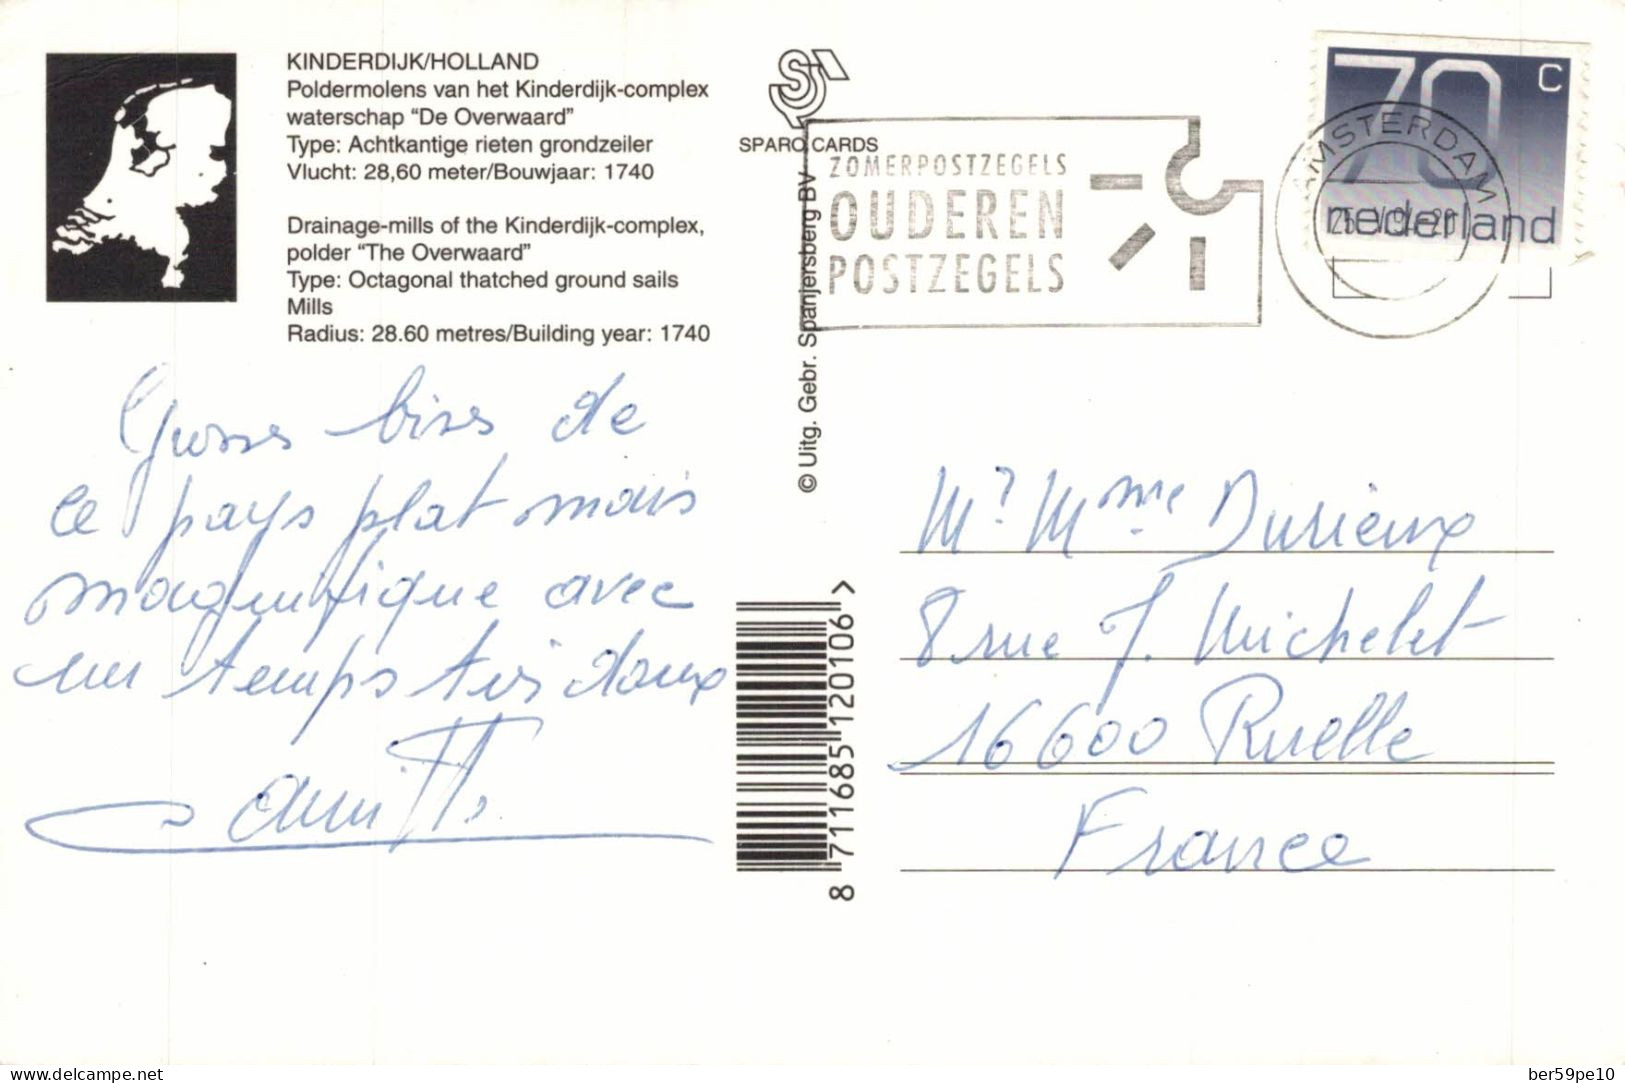 KINDERDIJK/HOLLAND
Poldermolens van het Kinderdijk-complex
waterschap "De Overwaard"
Type: Achtkantige rieten grondzeiler
Vlucht: 28,60 meter/Bouwjaar: 1740
Drainage-mills of the Kinderdijk-complex,
polder "The Overwaard"
Type: Octagonal thatched ground sails
Mills
Radius: 28.60 metres/Building year: 1740
Grosses bises de
ce pays plat mais
magnifique avec
un temps très doux
SPARO CARDS
© Uitg. Gebr. Spanjersberg BV
8 711685 120106 >
ZOMERPOSTZEGELS
OUDEREN
POSTZEGELS
AMSTERDAM
70 c
nederland
Mr Mme Durieux
8 rue J. Michelet
16600 Ruelle
France
delcampe.net
ber59pe10